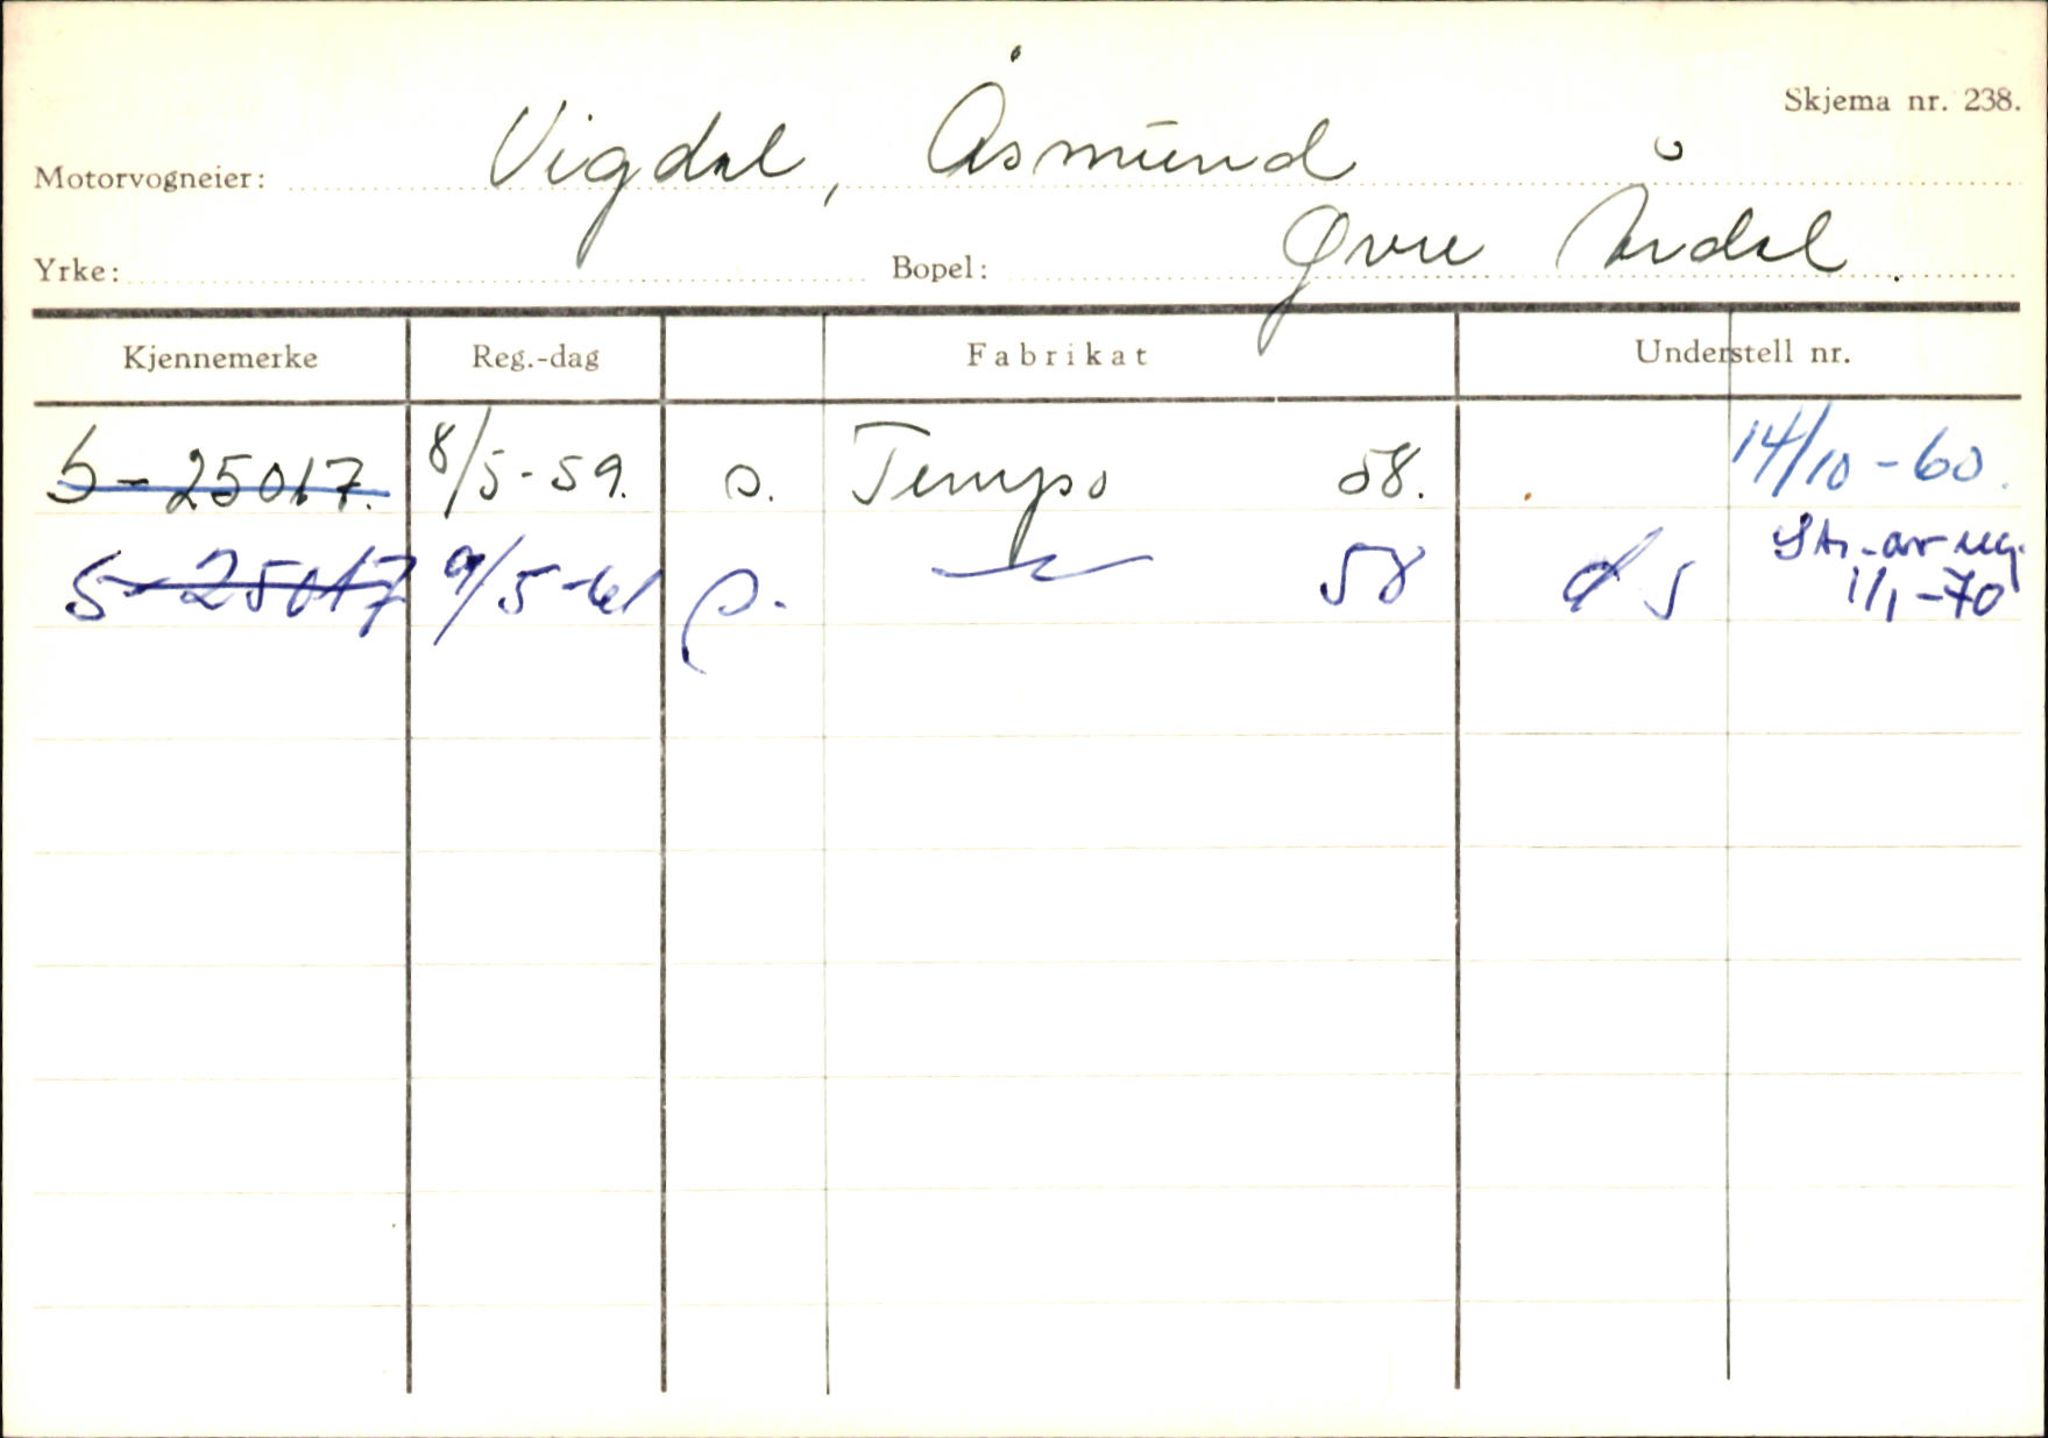 Skjema nr. 238.
Motorvogneier: Vigdal, Åsmund
Yrke: Bopel: Øvre Årdal.
Kjennemerke Reg.-dag Fabrikat Understell nr.
S-25017. 8/5-59. o. Tempo 58. 14/10-60.
S-25017 9/5-61 58 Str. av reg. 1/1-70